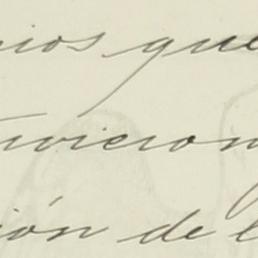 nios que
tuvieron
ión de l